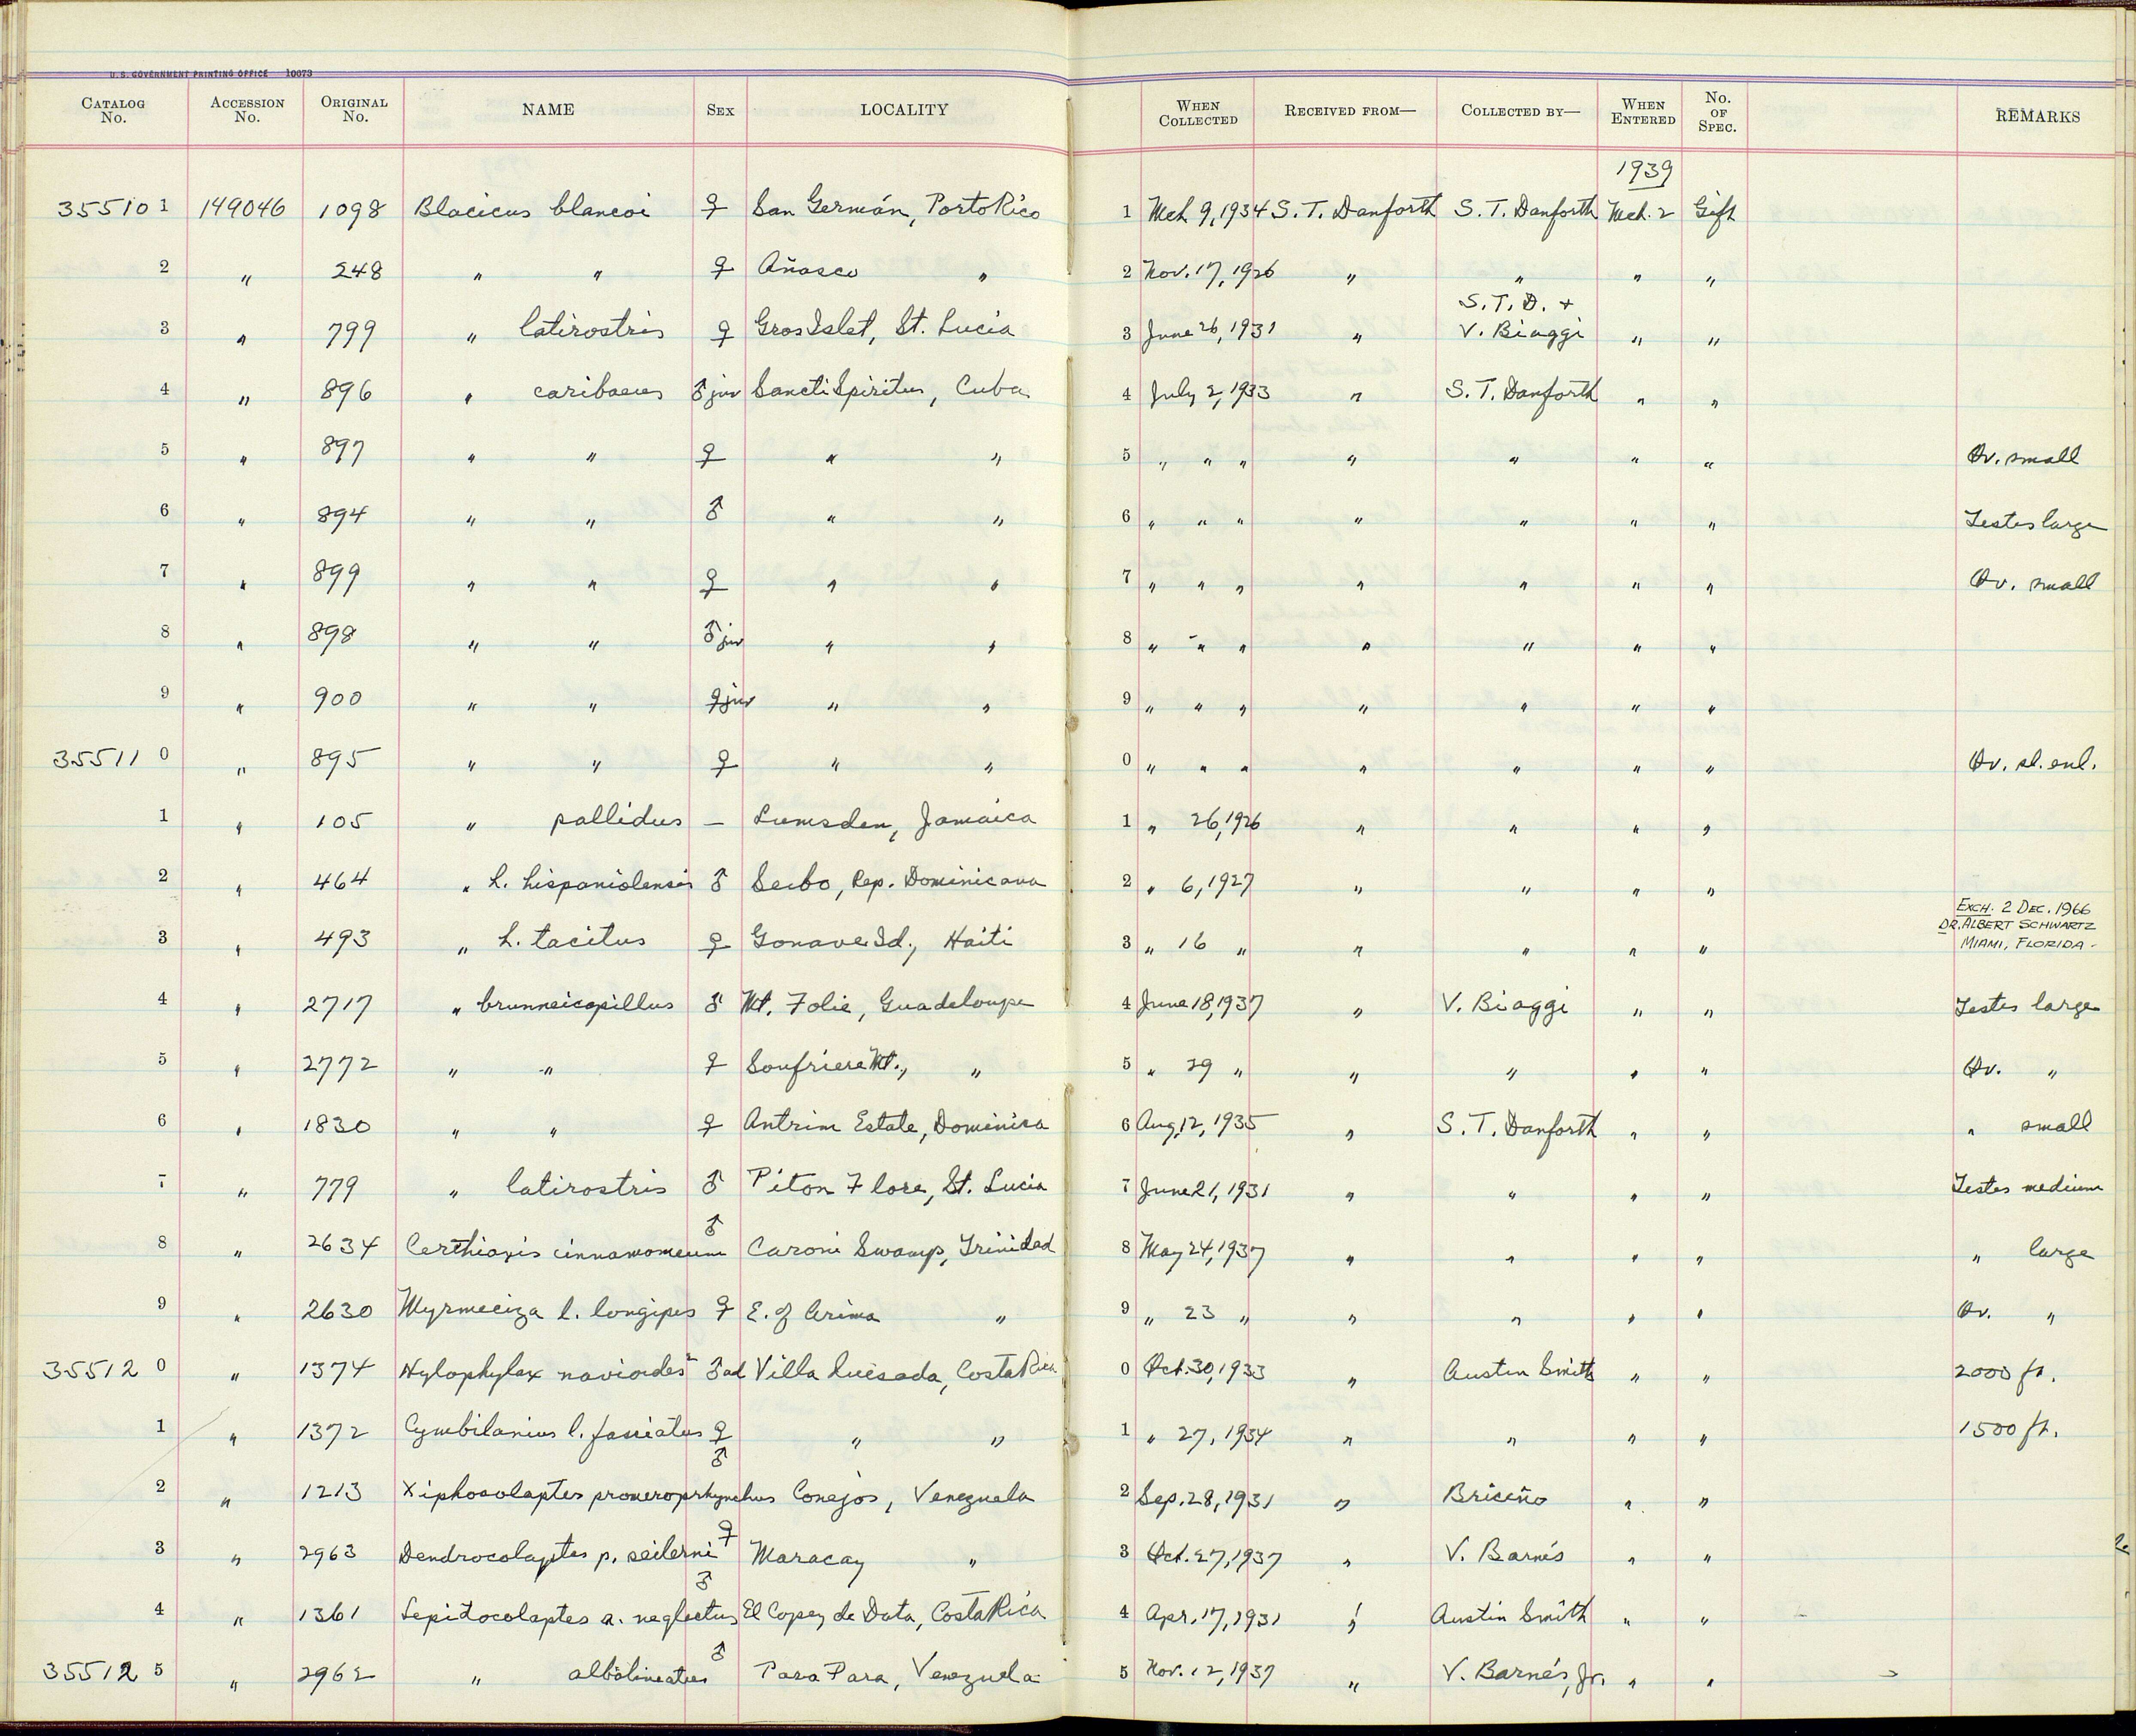 U.S. GOVERNMENT PRINTING OFFICE 10073
CATALOG No. ACCESSION No. ORIGINAL No. NAME SEX LOCALITY WHEN COLLECTED RECEIVED FROM— COLLECTED BY— WHEN ENTERED No. OF SPEC. REMARKS
1939
35510 1 149046 1098 Blacicus blancoi ♀ San Germán, Porto Rico 1 Mch 9, 1934 S. T. Danforth S. T. Danforth Mch. 2 Gift
2 " 248 " " ♀ Añasco " 2 Nov. 17, 1926 " " " "
3 " 799 " latirostris ♀ Gros Islet, St. Lucia 3 June 26, 1931 " S. T. D. + V. Biaggi " "
4 " 896 " caribaeus ♂ juv Sancti Spiritus, Cuba 4 July 2, 1933 " S. T. Danforth " "
5 " 897 " " ♀ " " 5 " " " " " " " Ov. small
6 " 894 " " ♂ " " 6 " " " " " " " Testes large
7 " 899 " " ♀ " " 7 " " " " " " " Ov. small
8 " 898 " " ♂ juv " " 8 " " " " " " "
9 " 900 " " ♀ juv " " 9 " " " " " " "
35511 0 " 895 " " ♀ " " 0 " " " " " " " Ov. sl. enl.
1 " 105 " pallidus — Lumsden, Jamaica 1 " 26, 1926 " " " "
2 " 464 " h. hispaniolensis ♂ Seibo, Rep. Dominicana 2 " 6, 1927 " " " "
3 " 493 " h. tacitus ♀ Gonave Id., Haiti 3 " 16 " " " " " EXCH. 2 DEC. 1966 DR. ALBERT SCHWARTZ MIAMI, FLORIDA -
4 " 2717 " brunneicapillus ♂ Mt. Folie, Guadeloupe 4 June 18, 1937 " V. Biaggi " " Testes large
5 " 2772 " " ♀ Soufriere Mt., " 5 " 29 " " " " " Ov. "
6 " 1830 " " ♀ Antrim Estate, Dominica 6 Aug, 12, 1935 " S. T. Danforth " " " small
7 " 779 " latirostris ♂ Piton Flore, St. Lucia 7 June 21, 1931 " " " " Testes medium
8 " 2634 Certhiaxis cinnamomeum ♂ Caroni Swamp, Trinidad 8 May 24, 1937 " " " " " large
9 " 2630 Myrmeciza l. longipes ♀ E. of Arima " 9 " 23 " " " " " Ov. "
35512 0 " 1374 Hylophylax navioides ♂ ad Villa Quesada, Costa Rica 0 Oct. 30, 1933 " Austin Smith " " 2000 ft.
1 " 1372 Cymbilanius l. fasciatus ♀ " " 1 " 27, 1934 " " " " 1500 ft.
2 " 1213 Xiphocolaptes promeroprhynchus ♂ Conejos, Venezuela 2 Sep. 28, 1931 " Briceño " "
3 " 2963 Dendrocolaptes p. seilerni ♀ Maracay " 3 Oct. 27, 1937 " V. Barnés " "
4 " 1361 Lepidocolaptes a. neglectus ♂ El Copey de Dota, Costa Rica 4 Apr. 17, 1931 " Austin Smith " "
35512 5 " 2962 " albolineatus ♂ Para Para, Venezuela 5 Nov. 12, 1937 " V. Barnés, Jr. " "